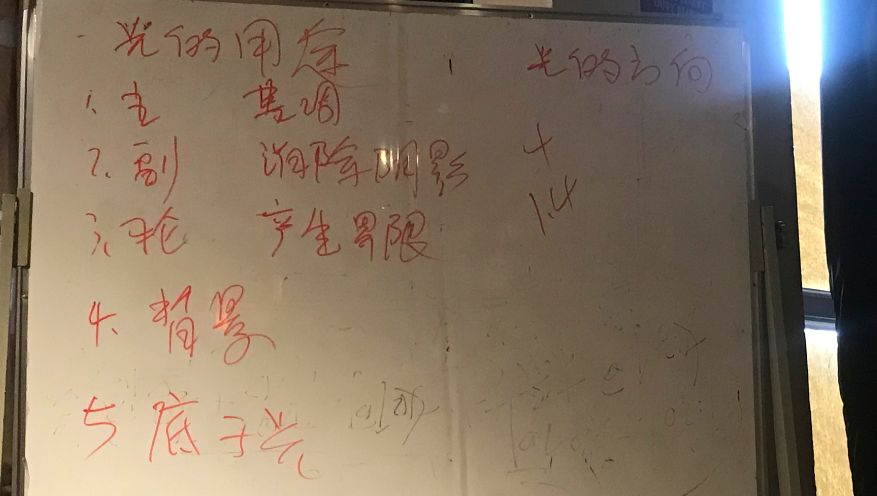 光的用途 光的方向
1. 主 基调
2. 副 消除阴影 +
3. 轮 产生界限 1.4
4. 背景
5 底子光